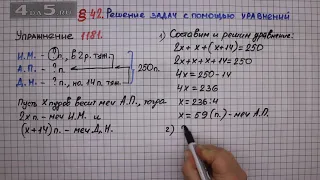 4 da 5.ru
§ 42. Решение задач с помощью уравнений
Упражнение 1181.
И.М. – ? п., в 2 р. тяж.
А.П. – ? п.
Д.Н. – ? п., на 14 п. тяж.
250 п.
Пусть x пудов весит меч А.П., тогда
2x п. – меч И.М. и
(x+14) п. – меч Д.Н.
1) Составим и решим уравнение:
2x + x + (x+14) = 250
2x + x + x + 14 = 250
4x = 250 – 14
4x = 236
x = 236 : 4
x = 59 (п.) – меч А.П.
2)